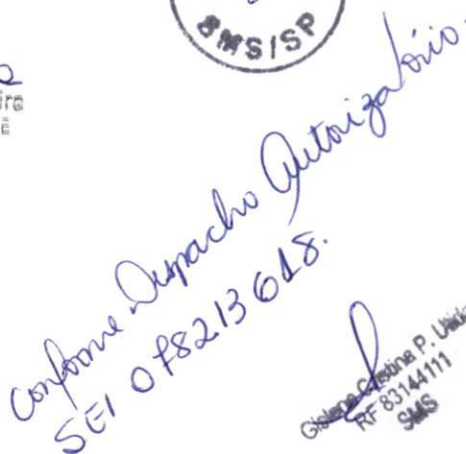 SMS/SP
Conforme Despacho Autorizatório.
SEI 078213618.
Cristina P.
RF 83144111
SMS